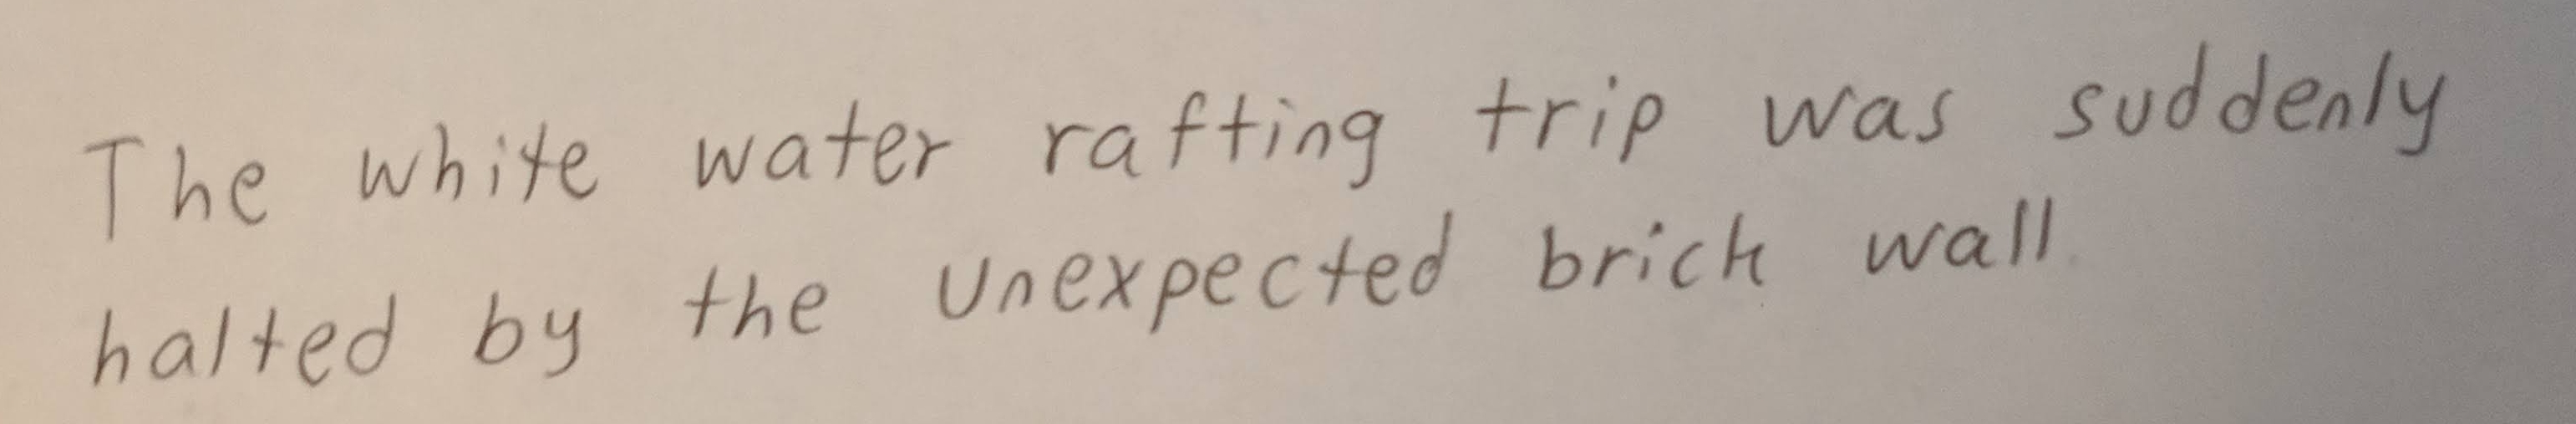 The white water rafting trip was suddenly
halted by the unexpected brick wall.